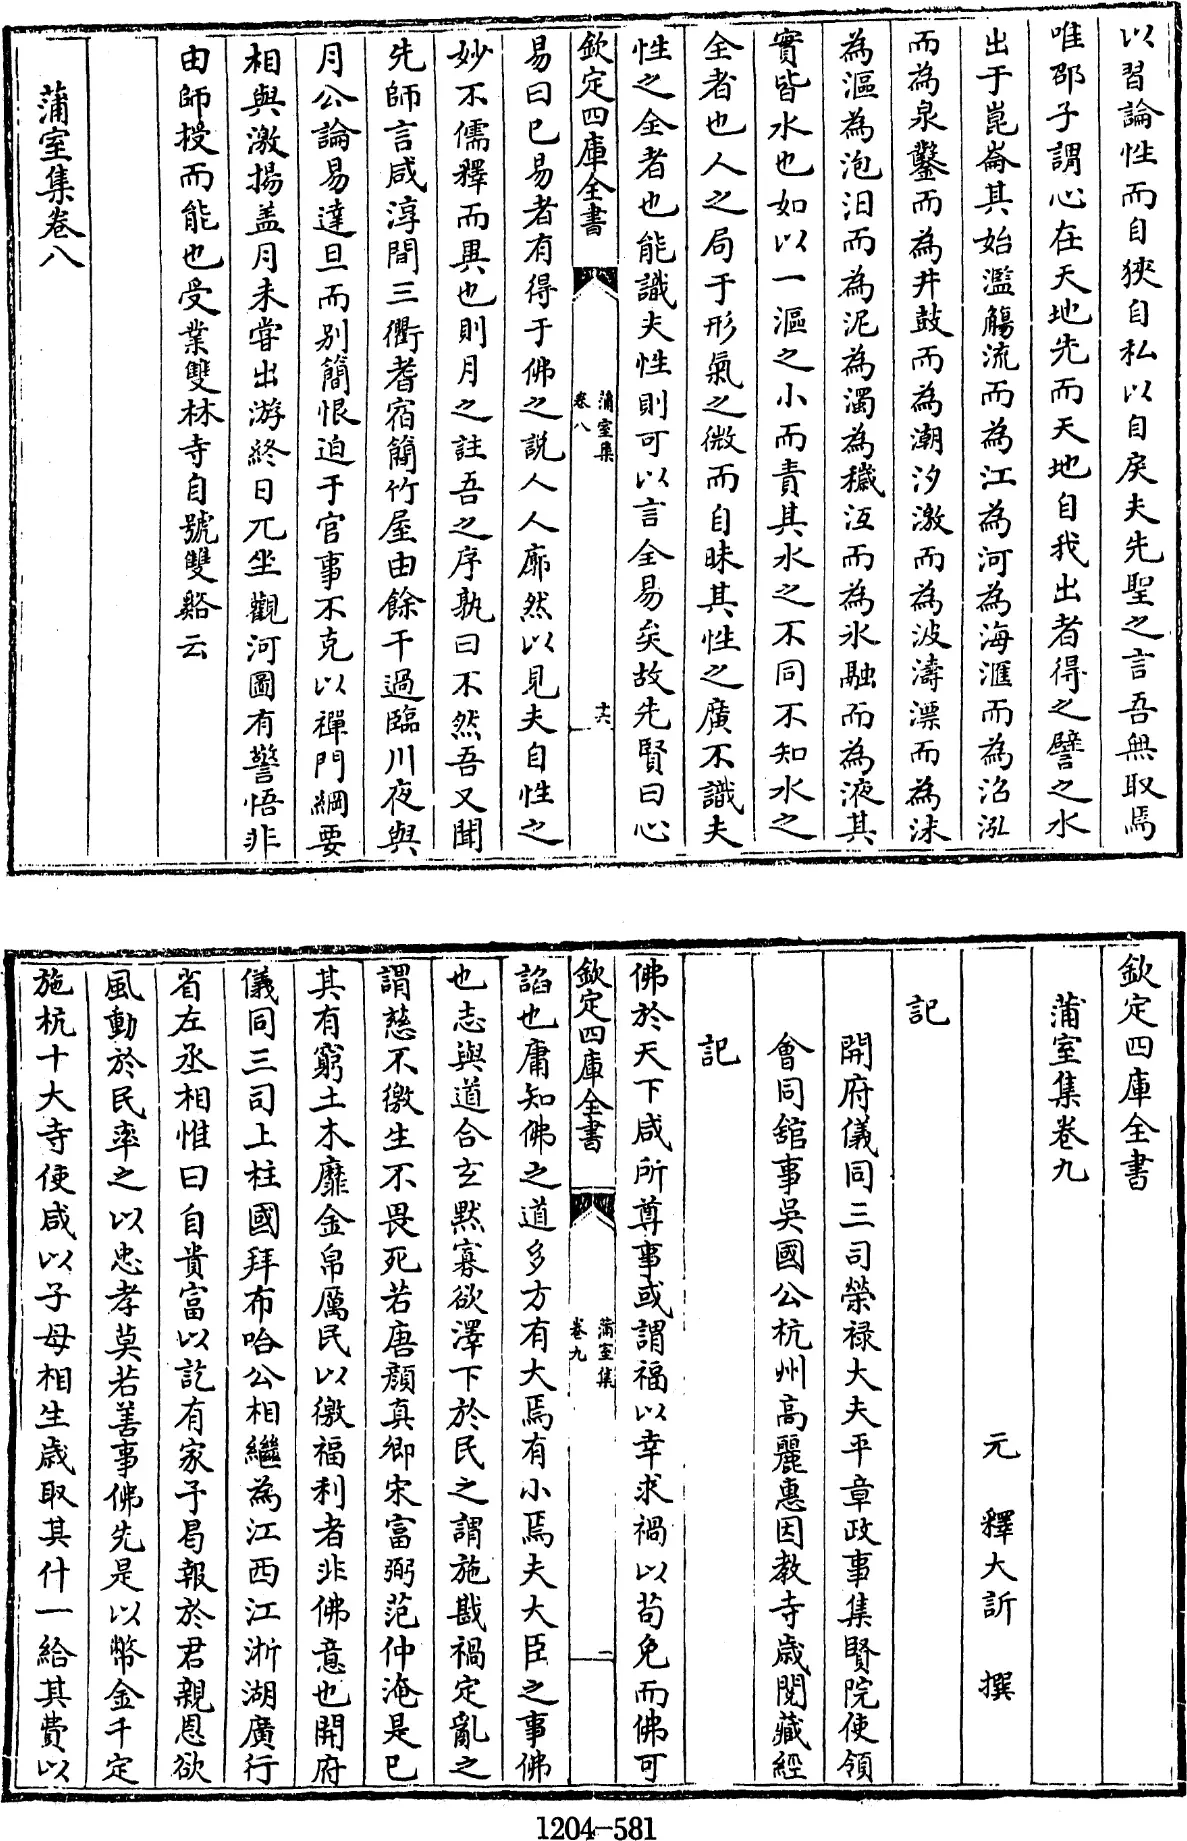 以習論性而自狹自私以自戾夫先聖之言吾無取焉
唯邵子謂心在天地先而天地自我出者得之譬之水
出于崑崙其始濫觴流而為江為河為海滙而為沼泓
而為泉鑿而為井鼓而為潮汐激而為波濤漂而為沫
為漚為泡汨而為泥為濁為穢沍而為氷融而為液其
實皆水也如以一漚之小而責其水之不同不知水之
全者也人之局于形氣之微而自昧其性之廣不識夫
性之全者也能識夫性則可以言全易矣故先賢曰心
欽定四庫全書
蒲室集
卷八
十六
易曰已易者有得于佛之説人人廓然以見夫自性之
妙不儒釋而異也則月之註吾之序孰曰不然吾又聞
先師言咸淳間三衢耆宿簡竹屋由餘干過臨川夜與
月公論易達旦而别簡恨迫于官事不克以禪門綱要
相與激揚盖月未嘗出游終日兀坐觀河圖有警悟非
由師授而能也受業雙林寺自號雙谿云
蒲室集卷八
欽定四庫全書
蒲室集卷九
元 釋大訢 撰
記
開府儀同三司榮禄大夫平章政事集賢院使領
會同舘事吳國公杭州高麗惠因教寺歲閱藏經
記
佛於天下咸所尊事或謂福以幸求禍以苟免而佛可
欽定四庫全書
蒲室集
卷九
二
諂也庸知佛之道多方有大焉有小焉夫大臣之事佛
也志與道合玄默寡欲澤下於民之謂施戡禍定亂之
謂慈不徼生不畏死若唐顔真卿宋富弼范仲淹是已
其有窮土木靡金帛厲民以徼福利者非佛意也開府
儀同三司上柱國拜布哈公相繼為江西江淅湖廣行
省左丞相惟曰自貴富以訖有家予曷報於君親恩欲
風動於民率之以忠孝莫若善事佛先是以幣金千定
施杭十大寺使咸以子母相生歲取其什一給其費以
1204-581